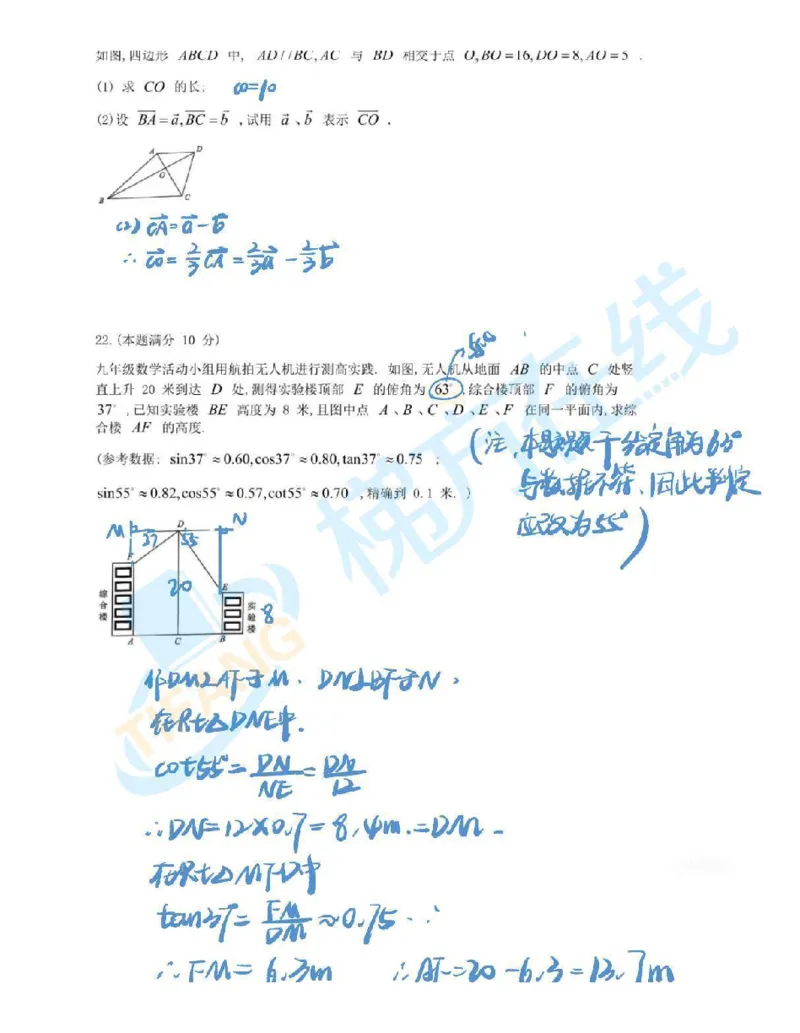 如图,四边形 ABCD 中, AD//BC,AC 与 BD 相交于点 O,BO=16,DO=8,AO=5 .
(1) 求 CO 的长; CO=10
(2)设 BA=a,BC=b ,试用 a 、b 表示 CO .
A D
O
B C
(2) CA=a-b
∴ CO=2/3CA=2/3a-2/3b
22.(本题满分 10 分)
55°
九年级数学活动小组用航拍无人机进行测高实践. 如图,无人机从地面 AB 的中点 C 处竖
直上升 20 米到达 D 处,测得实验楼顶部 E 的俯角为 63° ,综合楼顶部 F 的俯角为
37° ,已知实验楼 BE 高度为 8 米,且图中点 A 、B 、C 、D 、E 、F 在同一平面内,求综
合楼 AF 的高度.
(参考数据: sin37°≈0.60,cos37°≈0.80,tan37°≈0.75 ;
sin55°≈0.82,cos55°≈0.57,cot55°≈0.70 ,精确到 0.1 米. )
(注,本题题干给定角为63°
与数据不符、因此判定
应改为55°)
M D N
37 55
F
20
E
综合楼
实验楼
8
A C B
作DM⊥AF于M、DN⊥BF于N,
在Rt△DNE中.
cot55°=DN/NE=DN/12
∴DN=12×0.7=8.4m.=DM.
在Rt△MFD中
tan37°=FM/DM≈0.75.
∴FM=6.3m ∴AF=20-6.3=13.7m
梯方在线
TIFANG